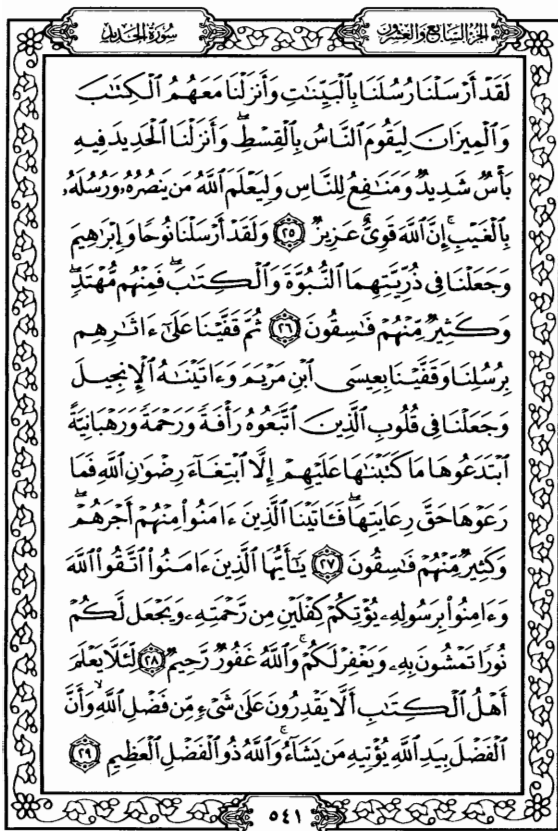 سُورَةُ الْحَدِيدِ
الجُزْءُ السَّابِعُ وَالْعِشْرُونَ
لَقَدْ أَرْسَلْنَا رُسُلَنَا بِٱلْبَيِّنَٰتِ وَأَنزَلْنَا مَعَهُمُ ٱلْكِتَٰبَ
وَٱلْمِيزَانَ لِيَقُومَ ٱلنَّاسُ بِٱلْقِسْطِۖ وَأَنزَلْنَا ٱلْحَدِيدَ فِيهِ
بَأْسٌ شَدِيدٌ وَمَنَٰفِعُ لِلنَّاسِ وَلِيَعْلَمَ ٱللَّهُ مَن يَنصُرُهُۥ وَرُسُلَهُۥ
بِٱلْغَيْبِۚ إِنَّ ٱللَّهَ قَوِىٌّ عَزِيزٌ ٢٥ وَلَقَدْ أَرْسَلْنَا نُوحًا وَإِبْرَٰهِيمَ
وَجَعَلْنَا فِى ذُرِّيَّتِهِمَا ٱلنُّبُوَّةَ وَٱلْكِتَٰبَۖ فَمِنْهُم مُّهْتَدٍۖ
وَكَثِيرٌ مِّنْهُمْ فَٰسِقُونَ ٢٦ ثُمَّ قَفَّيْنَا عَلَىٰٓ ءَاثَٰرِهِم
بِرُسُلِنَا وَقَفَّيْنَا بِعِيسَى ٱبْنِ مَرْيَمَ وَءَاتَيْنَٰهُ ٱلْإِنجِيلَ
وَجَعَلْنَا فِى قُلُوبِ ٱلَّذِينَ ٱتَّبَعُوهُ رَأْفَةً وَرَحْمَةً وَرَهْبَانِيَّةً
ٱبْتَدَعُوهَا مَا كَتَبْنَٰهَا عَلَيْهِمْ إِلَّا ٱبْتِغَآءَ رِضْوَٰنِ ٱللَّهِ فَمَا
رَعَوْهَا حَقَّ رِعَايَتِهَاۖ فَـَٔاتَيْنَا ٱلَّذِينَ ءَامَنُوا۟ مِنْهُمْ أَجْرَهُمْۖ
وَكَثِيرٌ مِّنْهُمْ فَٰسِقُونَ ٢٧ يَٰٓأَيُّهَا ٱلَّذِينَ ءَامَنُوا۟ ٱتَّقُوا۟ ٱللَّهَ
وَءَامِنُوا۟ بِرَسُولِهِۦ يُؤْتِكُمْ كِفْلَيْنِ مِن رَّحْمَتِهِۦ وَيَجْعَل لَّكُمْ
نُورًا تَمْشُونَ بِهِۦ وَيَغْفِرْ لَكُمْۚ وَٱللَّهُ غَفُورٌ رَّحِيمٌ ٢٨ لِّئَلَّا يَعْلَمَ
أَهْلُ ٱلْكِتَٰبِ أَلَّا يَقْدِرُونَ عَلَىٰ شَىْءٍ مِّن فَضْلِ ٱللَّهِۙ وَأَنَّ
ٱلْفَضْلَ بِيَدِ ٱللَّهِ يُؤْتِيهِ مَن يَشَآءُۚ وَٱللَّهُ ذُو ٱلْفَضْلِ ٱلْعَظِيمِ ٢٩
٥٤١